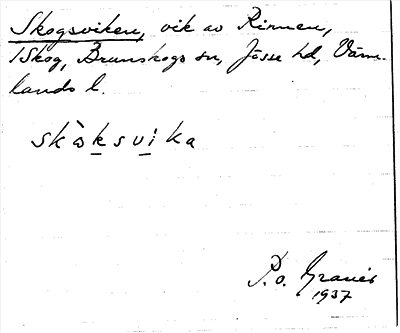 Skogsviken, vik av Rinnen,
1 Skog, Brunskogs sn, Jösse hd, Värm-
lands l.
skòksvika
P.o. Granér
1937